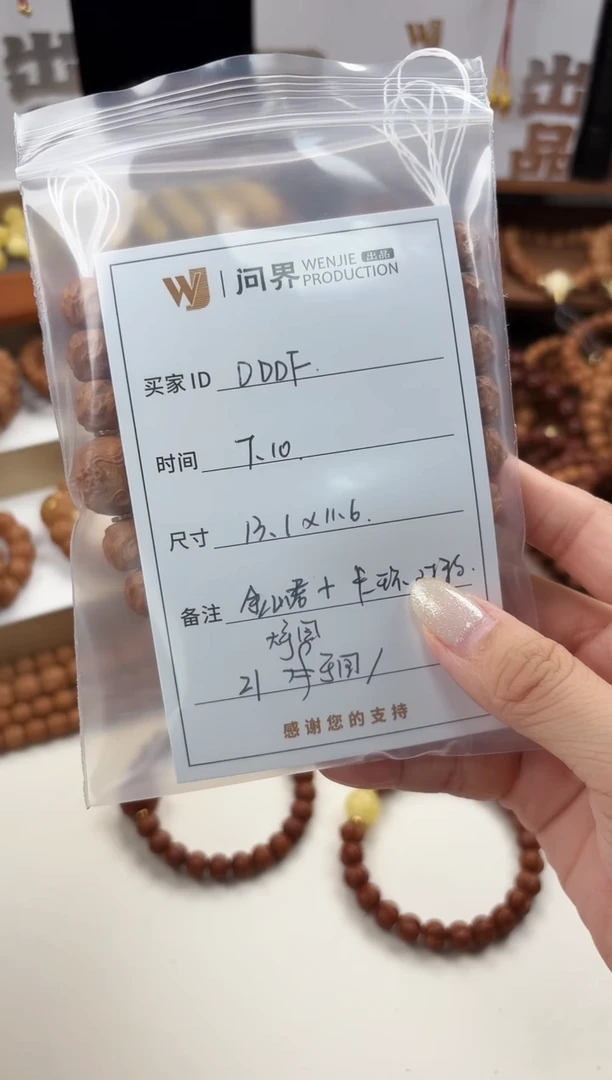 出品
WJ
出品
WJ 问界 WENJIE 出品
PRODUCTION
买家 ID DDDF.
时间 7.10.
尺寸 13.1×11.6.
备注 +卡
21 /
感谢您的支持